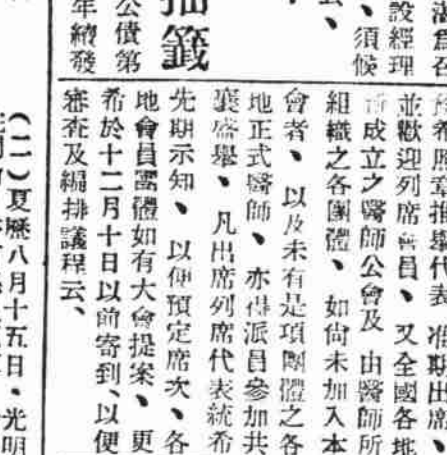 設經理
、須候
云、
抽籤
公債第
年續發
希照章推舉代表、准期出席、
並歡迎列席會員、又全國各地
成立之醫師公會及 由醫師所
組織之各團體、如尚未加入本
會者、以及未有是項團體之各
地正式醫師、亦得派員參加共
襄盛舉、凡出席列席代表統希
先期示知、以便預定席次、各
地會員團體如有大會提案、更
希於十二月十日以前寄到、以便
審查及編排議程云、
（二）夏曆八月十五日·光明